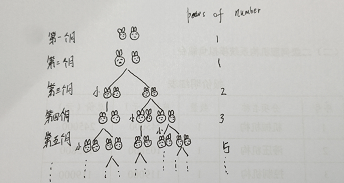 pairs of number
第一个月 1
第二个月 1
第三个月 小 2
第四个月 小 3
第五个月 小 小 5